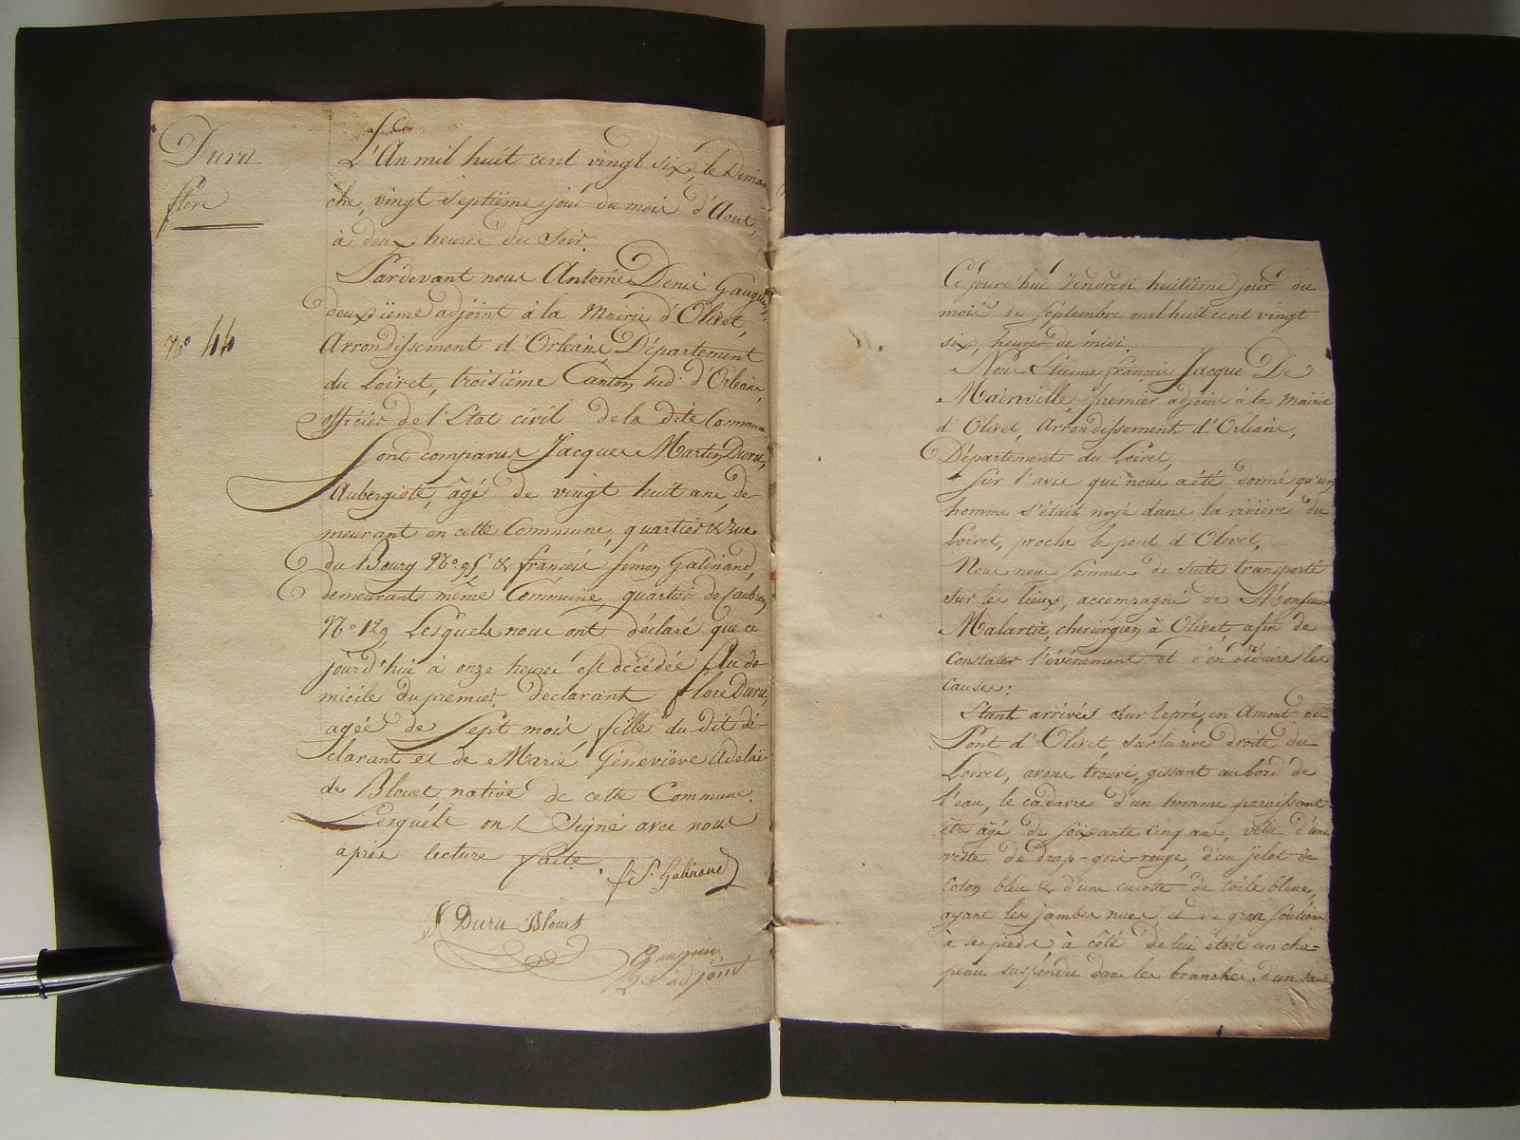 Duru
flore
N° 44
L'An mil huit cent vingt six, le Diman
che, vingt septième jour du mois d'Aout,
à deux heures du soir.
Pardevant nous Antoine Denis Gauguin,
deuxième adjoint à la Mairie d'Olivet,
Arrondissement d'Orléans Département
du Loiret, troisième Canton, sud d'Orléans,
officier de l'Etat civil de la dite Commune
Sont comparus Jacques Martin Duru,
Aubergiste, âgé de vingt huit ans, de-
meurant en cette Commune, quartier & rue
du Bourg N° 95 & francois Simon Galinand,
demeurants même Commune, quartier de
N° 129 Lesquels nous ont déclaré que ce
jourd'hui à onze heures est décédée Au do-
micile du premier declarant flore Duru,
agée de Sept mois fille du dit dé-
clarant et de Marie Geneviève Adelaï-
de Blouet native de cette Commune.
Lesquels ont Signé avec nous
après lecture faite.
fs S. Galinand
J Duru Blouet
Gauguin
2e adjoint
Ce jourd'hui Vendredi huitième jour du
mois de Septembre mil huit cent vingt
six, heures de midi.
Nous Etienne françois Jacque De
Mainville, premier adjoint à la mairie
d'Olivet, Arrondissement d'Orléans,
Département du Loiret,
Sur l'avis qui nous a été donné qu'un
homme s'était noyé dans la rivière du
Loiret, proche le pont d'Olivet,
Nous nous sommes de suite transporté
sur les lieux, accompagné de Monsieur
Malartic, chirurgien à Olivet afin de
constater l'événement et d'en déduire les
causes:
Etant arrivés sur le pré, en Amont du
Pont d'Olivet, sur la rive droite du
Loiret, avons trouvé, gissant au bord de
l'eau, le cadavre d'un homme paraissant
être âgé de soixante cinq ans, vêtu d'une
veste de drap-gris-rouge, d'un gilet de
coton bleu & d'une culotte de toile bleue,
ayant les jambes nues, et de gros souliers
à ses pieds à côté de lui était un cha-
peau suspendu dans les branches d'un